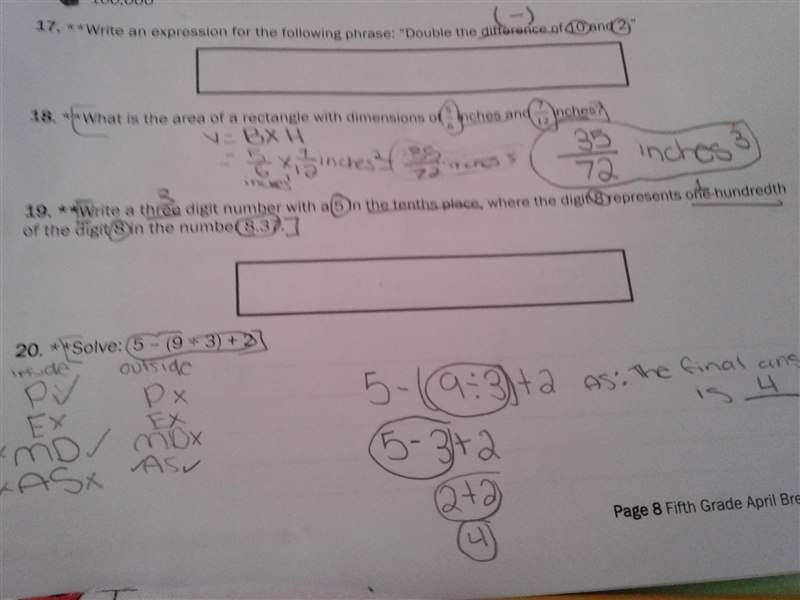 100,000
(−)
17. **Write an expression for the following phrase: "Double the difference of 10 and 2"
18. **What is the area of a rectangle with dimensions of 5/6 inches and 7/12 inches?
V = B x H
= 5/6 x 7/12 inches² = 35/72 inches³
inches
35/72 inches³
3
19. **Write a three digit number with a 5 in the tenths place, where the digit 8 represents one-hundredth
of the digit 8 in the number 8.37.
20. **Solve: (5 − (9 ÷ 3) + 2
inside outside
P✓ Px
Ex Ex
MD✓ MDx
ASx AS✓
5-(9÷3)+2
5-3)+2
2+2
4
AS: The final ans
is 4
Page 8 Fifth Grade April Bre